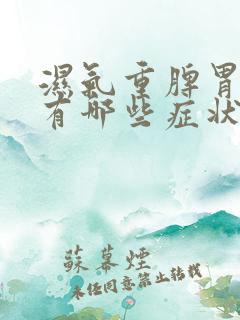 濕氣重脾胃
有哪些症狀
蘇幕煙
未經同意禁止轉載